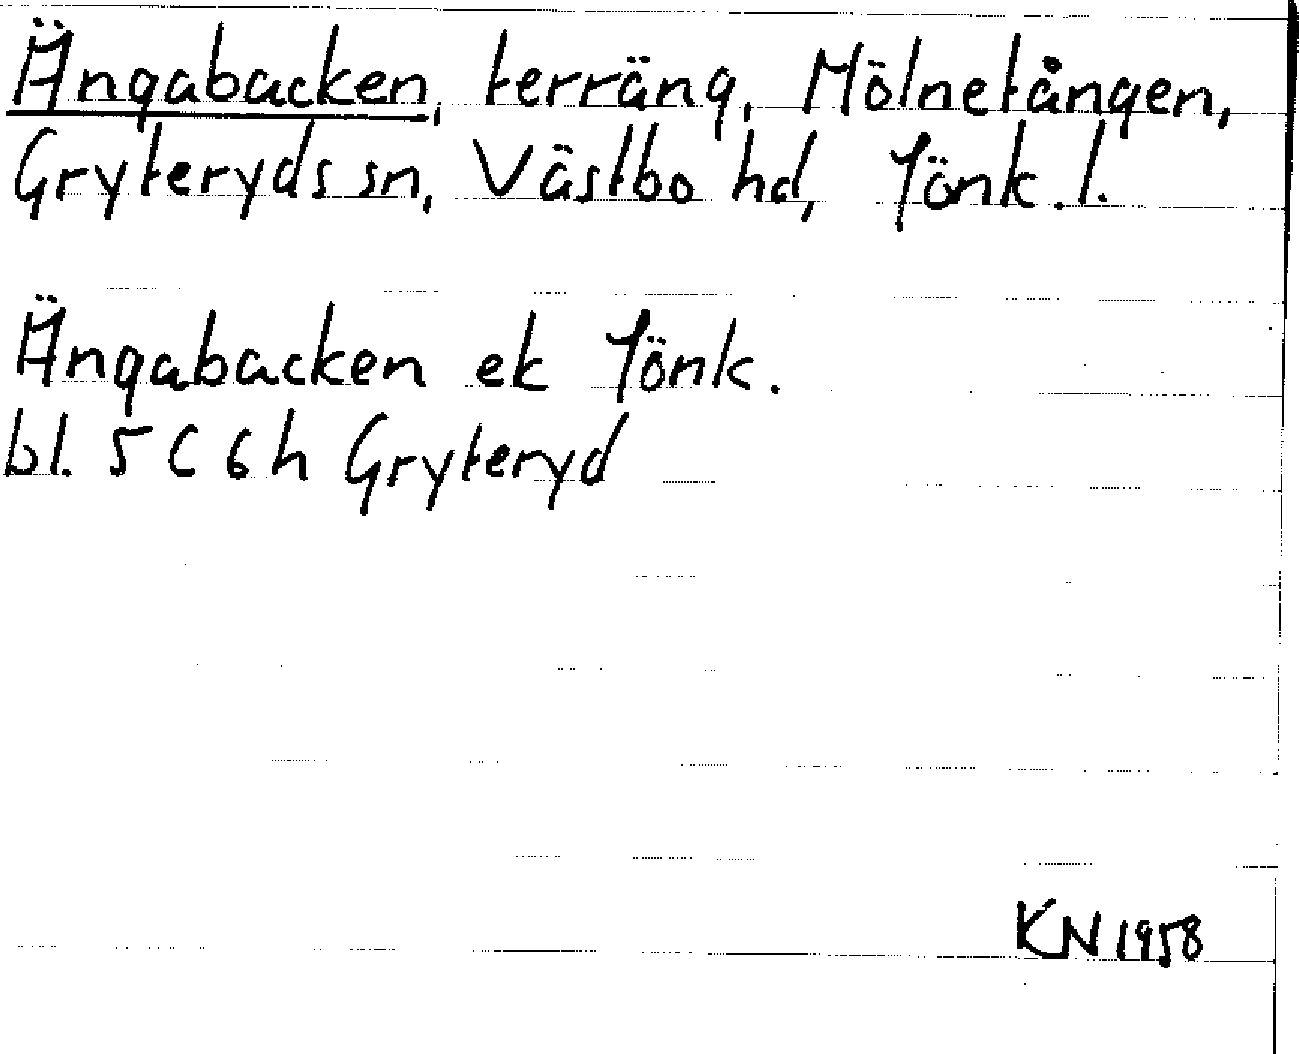 Ängabacken, terräng, Mölnetången,
Gryteryds sn, Västbo hd, Jönk. l.
Ängabacken ek Jönk.
bl. 5 C 6 h Gryteryd
KN 1958